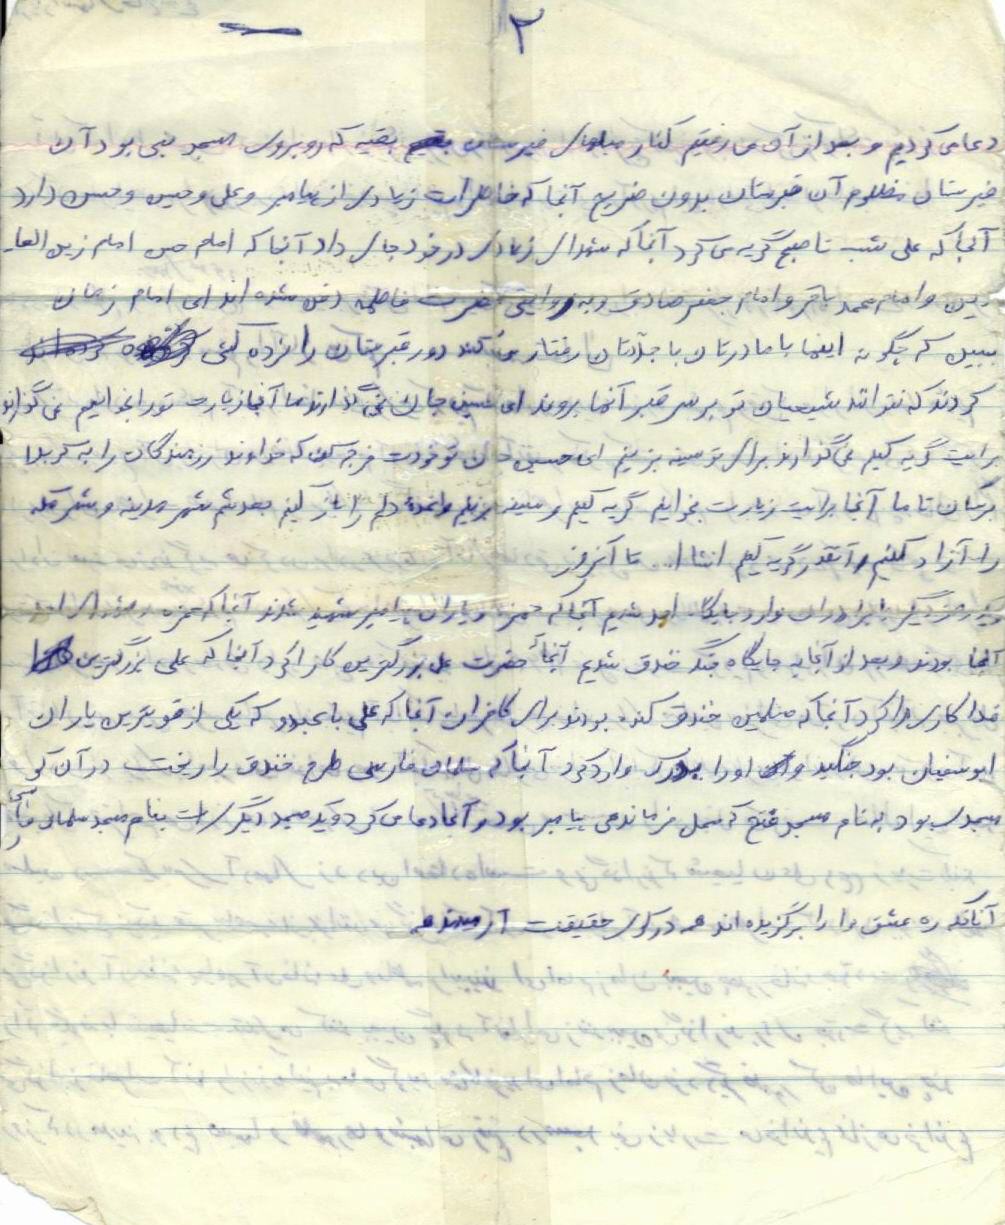 ۲
دعا می کردیم و بعد از آن می رفتیم کنار قبرستان بقیه که روبروی مسجد نبی بود آن
قبرستان مظلوم آن قبرستان بدون ضریح آنجا که خاطرات زیادی از پیامبر و علی و حسین و حسن دارد
آنجا که علی شب تا صبح گریه می کرد آنجا که شهدای زیادی در خود جای داد آنجا که امام حسن امام زین العا
بدین و امام محمد باقر و امام جعفر صادق و به روایتی حضرت فاطمه دفن شده اند ای امام زمان
ببین که چگونه اینها با مادرتان با جدتان رفتار می کنند دور قبرستان را نرده کشی
کردند که نتوانند شیعیان تو بر سر قبر آنها بروند ای حسین جان نمی گذارند ما آنجا زیارت تو را بخوانیم نمی گذارند
برایت گریه کنیم نمی گذارند برای تو سینه بزنیم ای حسین جان تو خودت فرجی کن که خداوند رزمندگان را به کربلا
برسان تا ما آنجا برایت زیارت بخوانیم گریه کنیم و سینه بزنیم و عقده دلم را باز کنیم بعد هم شهر مدینه و شهر مکه
را آزاد کنیم و آنقدر گریه کنیم انشا ا... تا آنروز
روز دیگر با برادران وارد احد شدیم آنجا که حمزه و یاران پیامبر شهید شدند آنجا که حمزه و شهدای احد
آنجا بودند و بعد از آنجا به جایگاه جنگ خندق شدیم آنجا حضرت علی بزرگترین کار را کرد آنجا که علی بزرگترین
فدا کاری را کرد آنجا که مسلمین خندق کنده بودند برای کافران آنجا که علی با عبدود که یکی از قویترین یاران
ابوسفیان بود جنگید و او را بدرک وارد کرد آنجا که سلمان فارسی طرح خندق را ریخت در آن
مسجدی بود به نام مسجد فتح که محل فرماندهی پیامبر بود و آنجا دعا می کرد و یک مسجد دیگر است بنام مسجد سلمان فارسی
آنانکه ره عشق را برگزیده اند همه در کوی حقیقت آرمیده اند